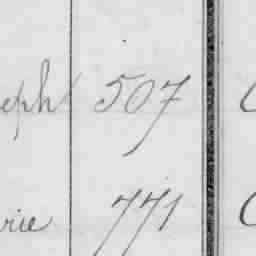 eph 507
rie 771